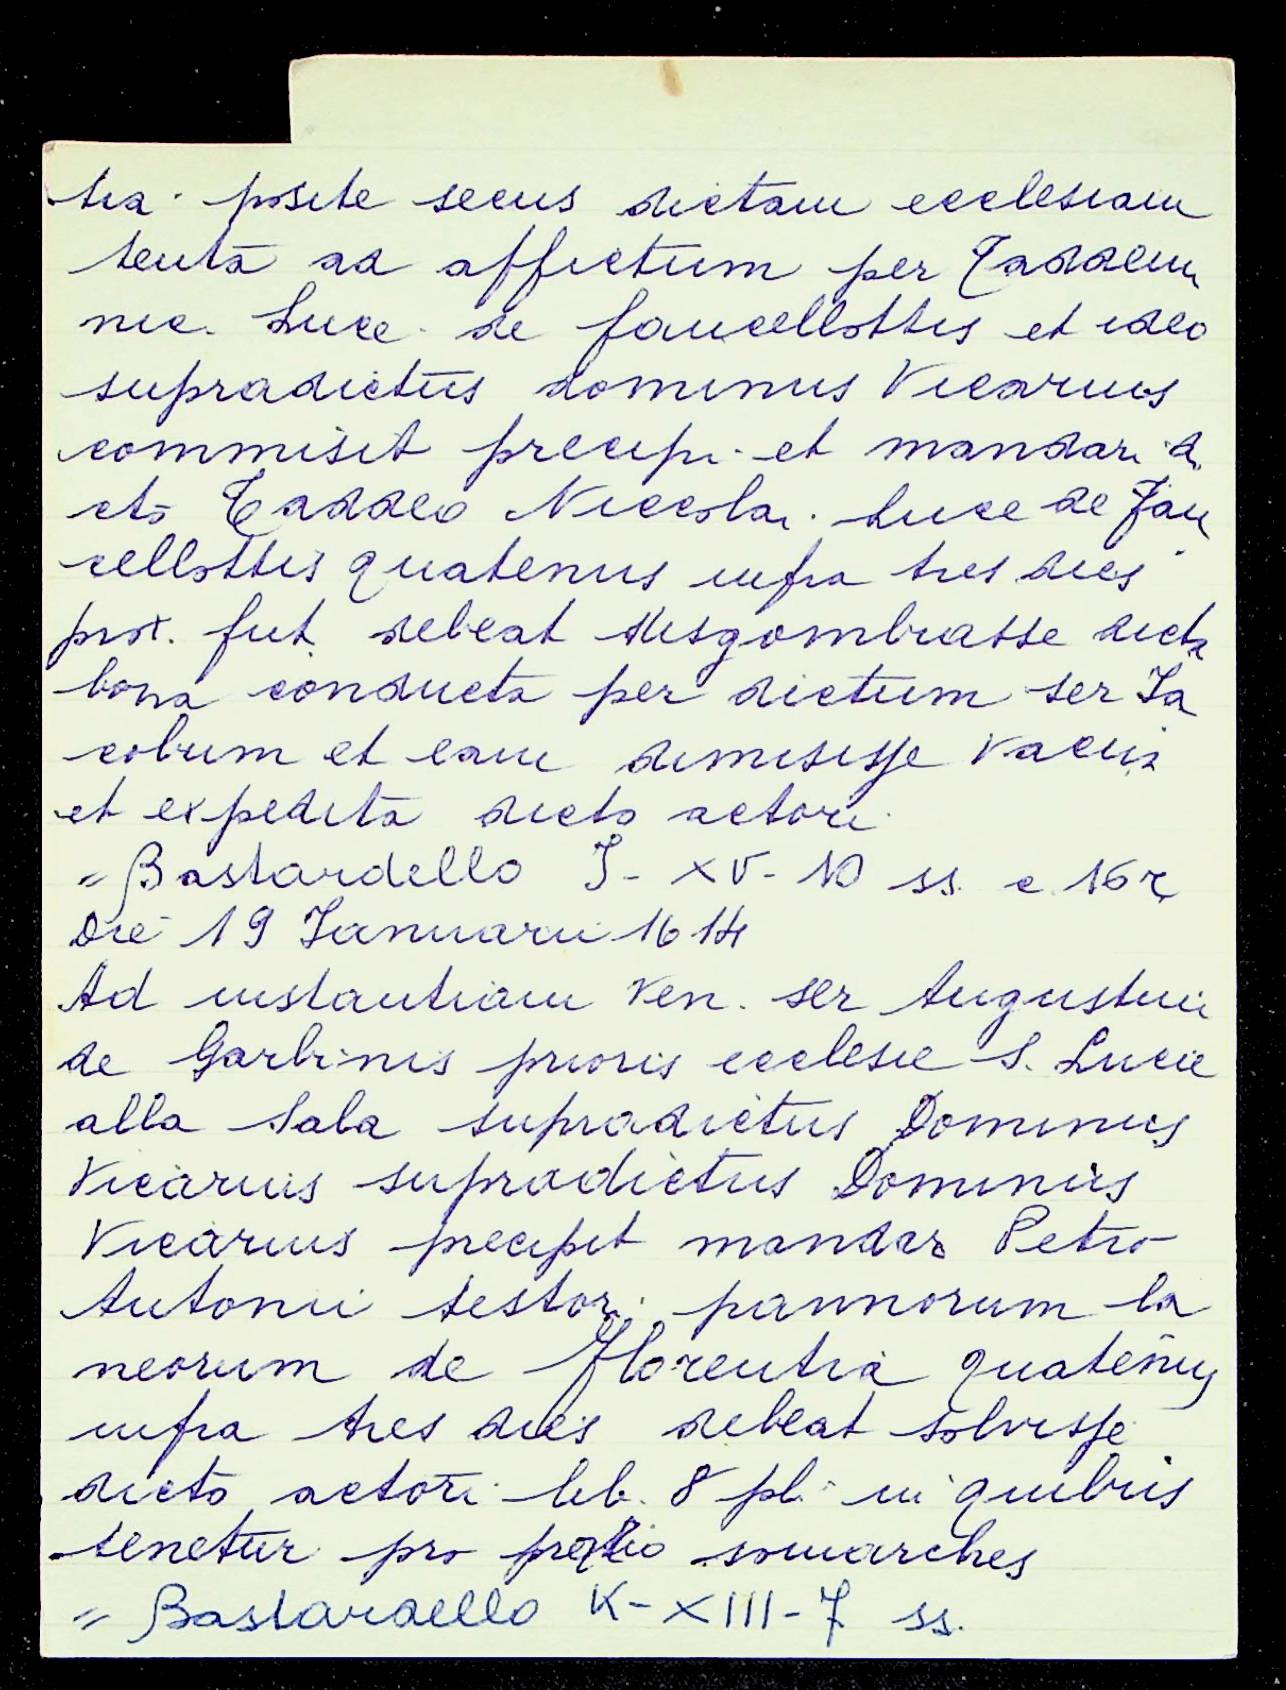 tra. posite secus dictam ecclesiam
tenta ad affictum per Taddeum
nic. Luce de faucellottis et ideo
supradictus dominus Vicarius
commisit precipi et mandari di
cto Taddeo Niccolai Luce de Fau
cellottis quatenus infra tres dies
prox. fut. debeat disgombrasse dicta
bona conducta per dictum ser Ja
cobum et eam dimisisse vacua
et expedita dicto actori
" Bastardello J - XV - 10 ss. c. 16 r
Die 19 Januarii 1614
Ad instantiam ven. ser Augustini
de Garbinis prioris ecclesie S. Lucie
alla Sala supradictus Dominus
Vicarius supradictus Dominus
Vicarius precepit mandari Petro
Antonii testori pannorum la
neorum de Florentia quatenus
infra tres dies debeat solvisse
dicto actori lib. 8 pl. in quibus
tenetur pro
" Bastardello K - XIII - 7 ss.